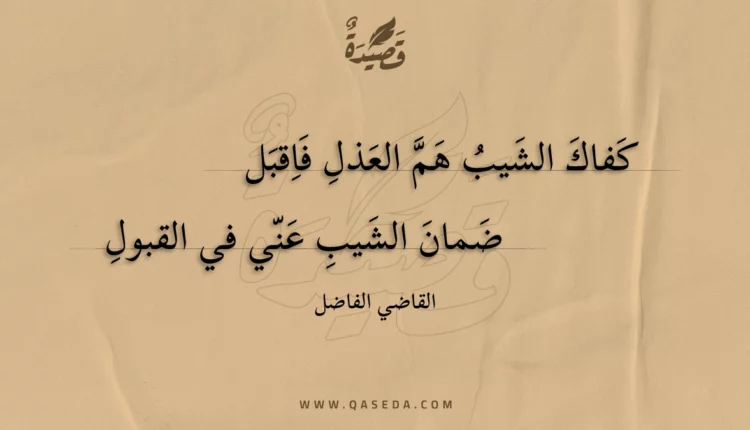 قَصِيْدَةٌ
كَفاكَ الشَيبُ هَمَّ العَذلِ فَاِقبَل
ضَمانَ الشَيبِ عَنّي في القبولِ
القاضي الفاضل
WWW.QASEDA.COM